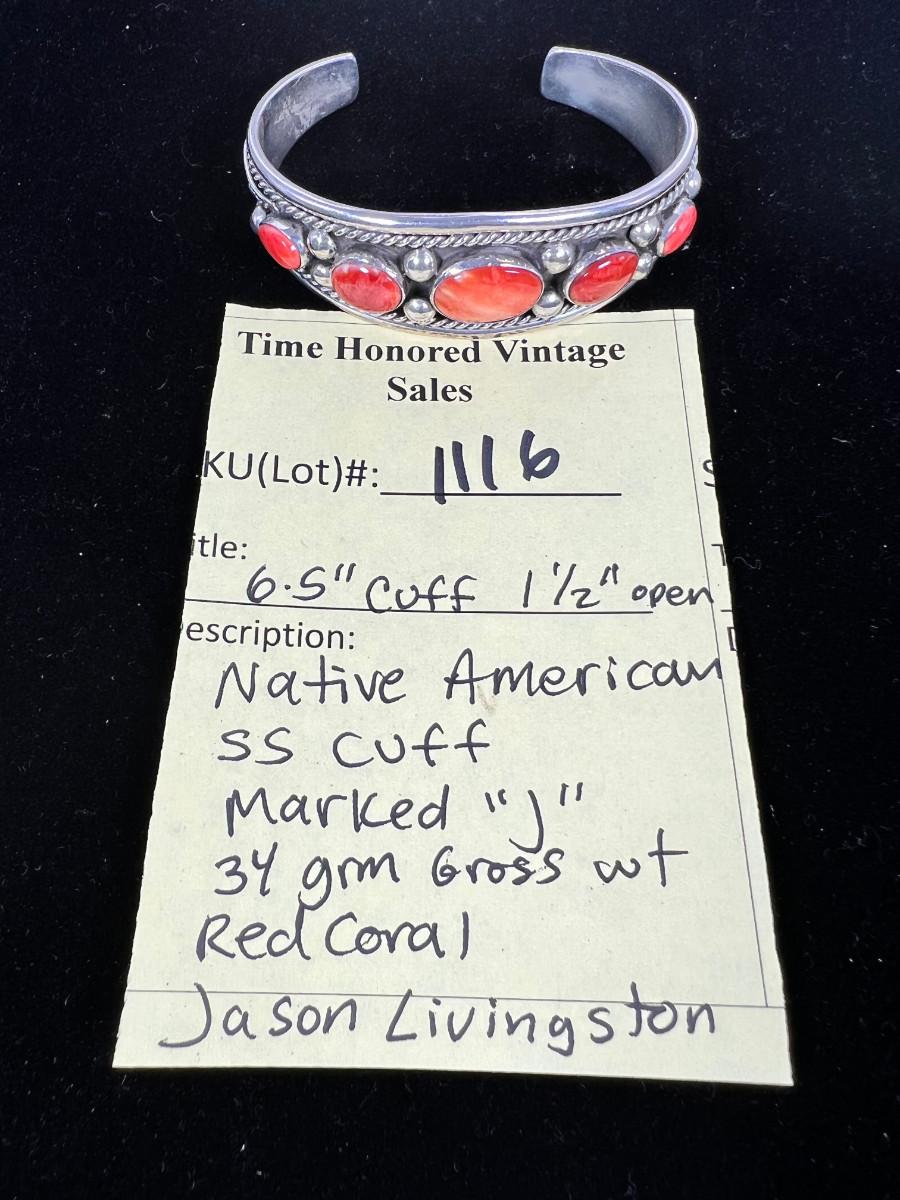 Time Honored Vintage
Sales
KU(Lot)#: 1116
itle:
6.5" Cuff 1 1/2" open
escription:
Native American
SS Cuff
Marked "J"
34 grm Gross wt
Red Coral
Jason Livingston